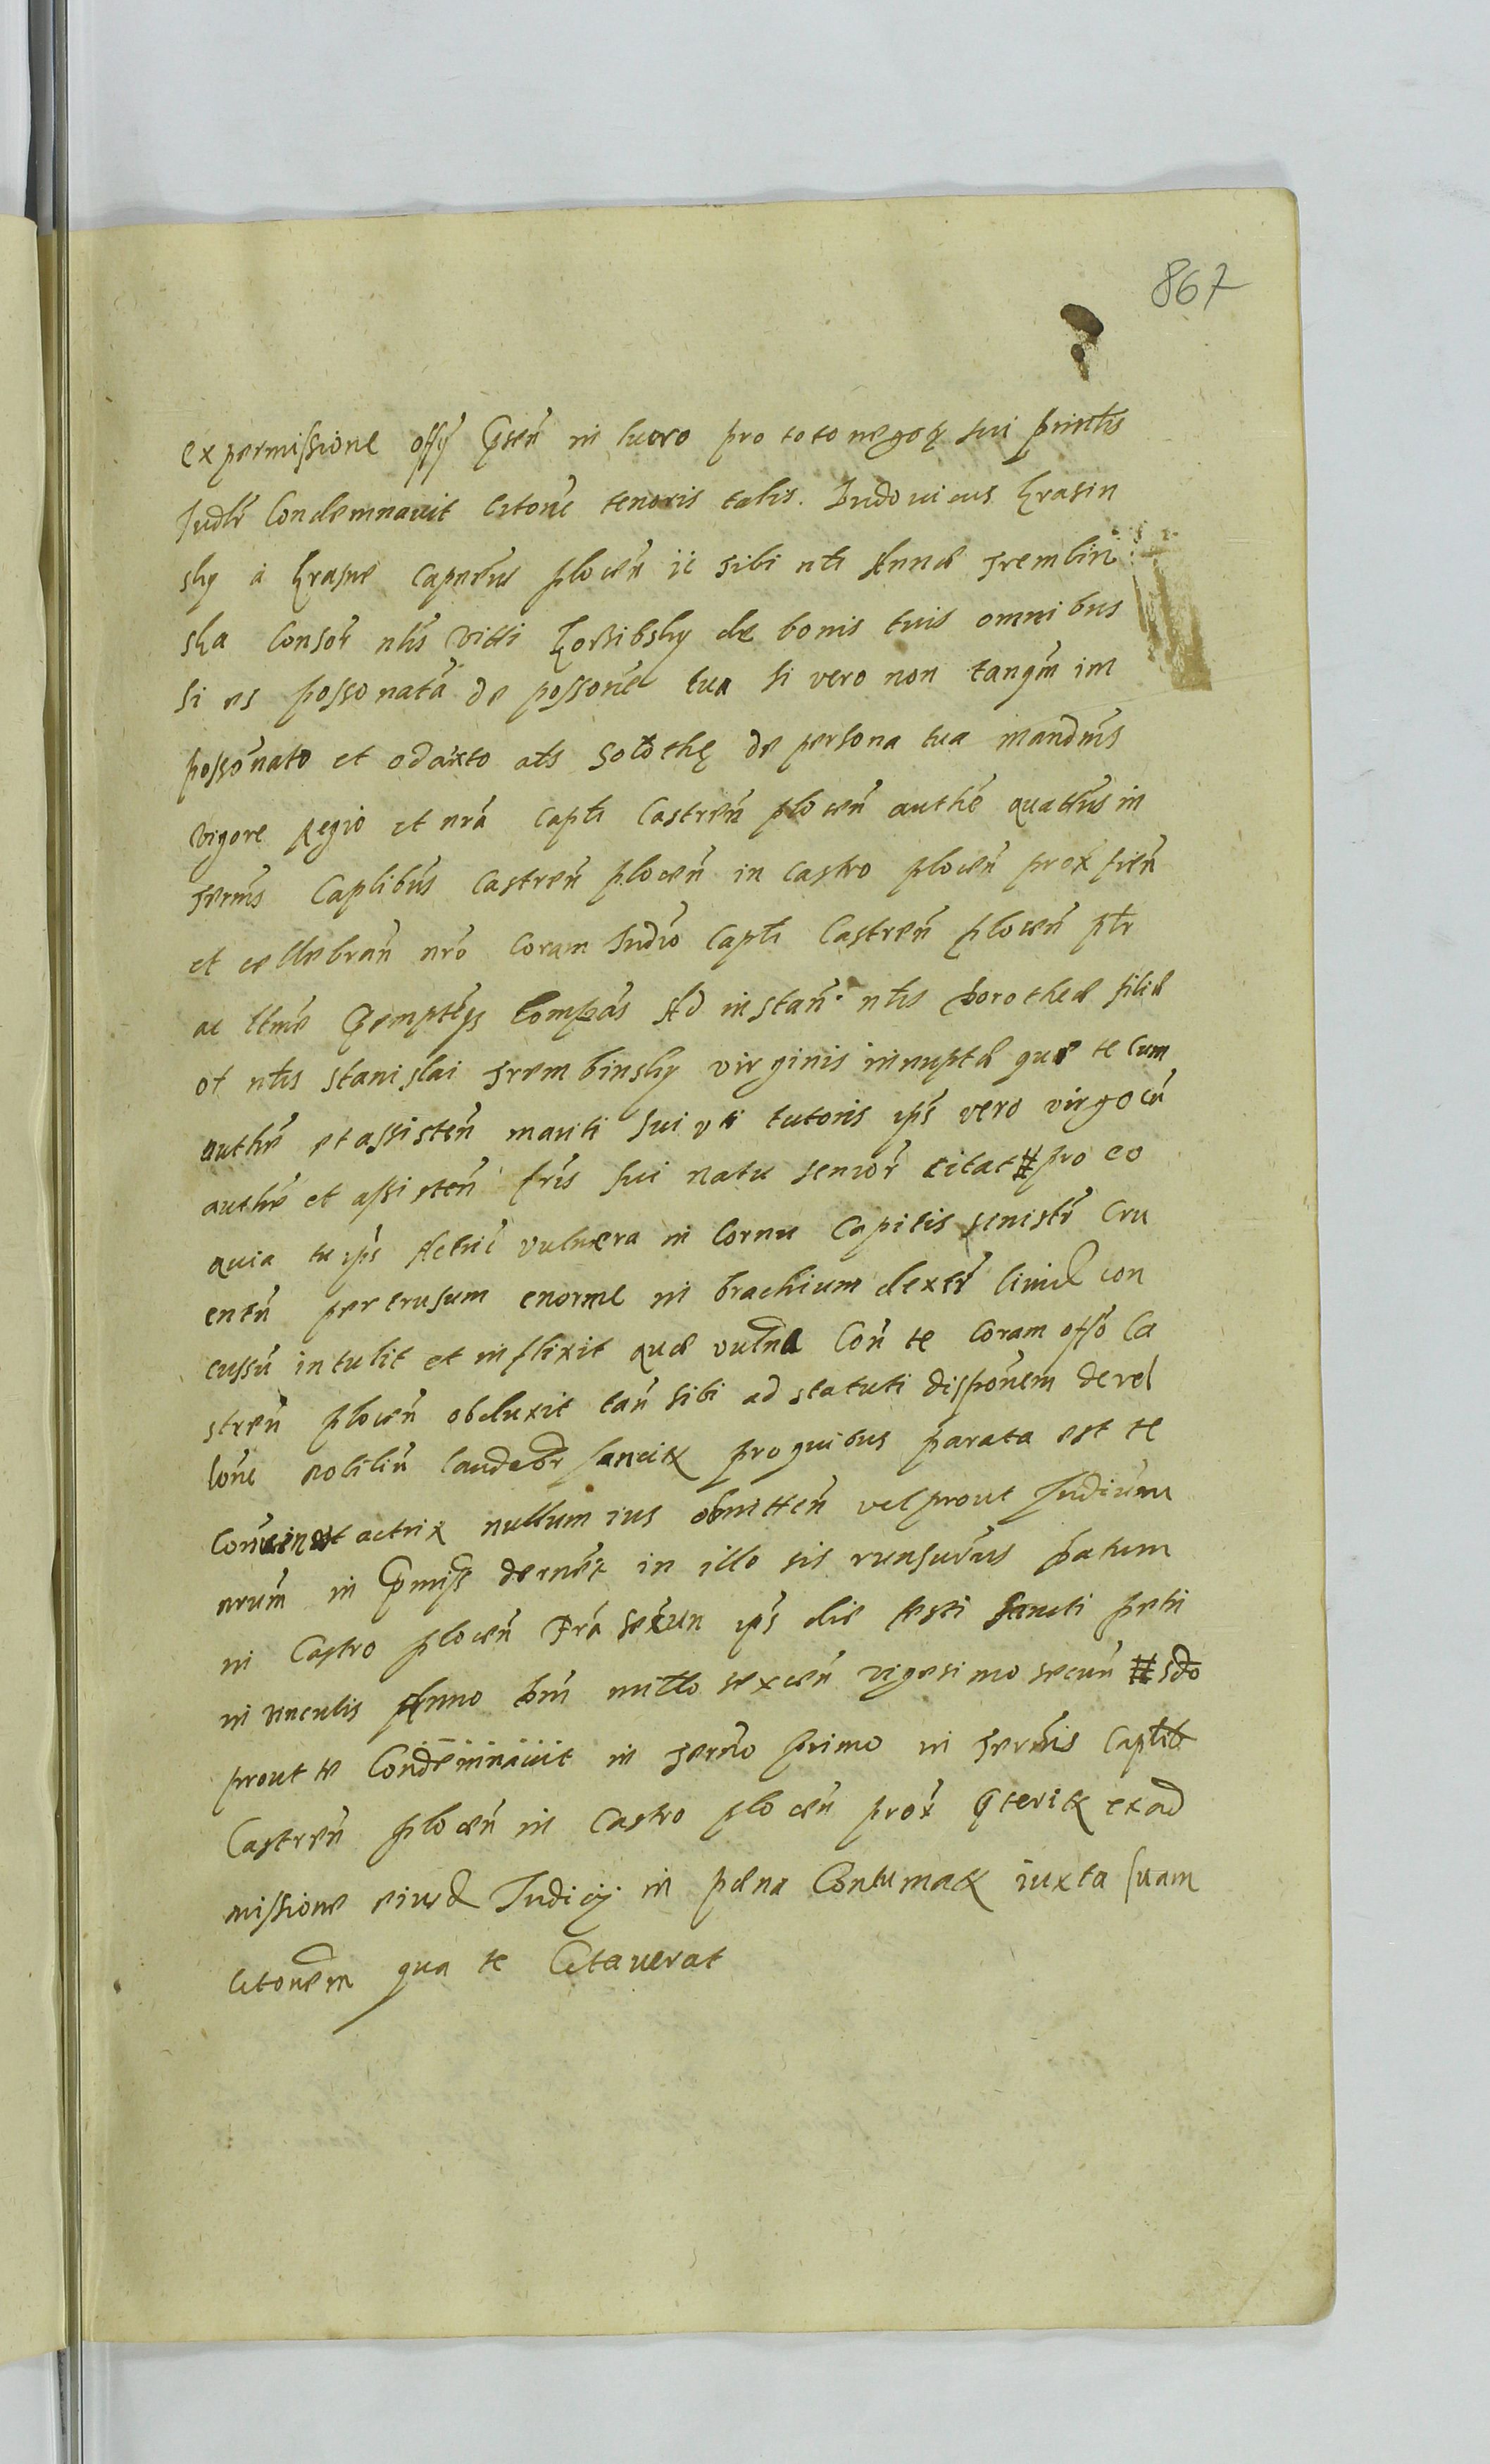 867
ex permissione offÿ Pñtẽ in lucro pro toto negoᵉ sui prinᵗlis
Judlr Condemnavit Citoñe tenoris talis. Ludovicus Krasin
sky à Krasne Capneus plocen̄ tibi nłi Annæ Srembin
ska Consor̃ nłis Vitti Kossibsky de bonis tuis omnibus
si es possonata de possone tua si vero non tanqm̃ im
possonato et odarto ałs Gołothę de persona tua mandm̃s
vigore Regio et nr̃a Capłi Castren̄ plocen̄ authe quatus in
Term̃s Caplibus Castren̄ plocen̄ in castro plocen̄ prox̃ fien̄
et cellebran̄ nr̃o Coram Judio Capłi Castren̄ plocen̄ płr
ac ltme Pemptẽ Compas Ad instan̄ nłis Dorotheæ filiæ
ol nłis Stanislai Srembinsky virginis innuptæ quæ te cum
authe et assisten̄ mariti sui uti tutoris ip̃s vero virgo cũ
authe et assisten̄ fr̃is sui natu senior̃ citat # pro eo
quia tu ip̃s Actrici vulnera in Cornu Capitis senistr̃ Cru
entũ per trusum enorme in brachium dextr̃ livid con
cussũ intulit et inflixit quæ vulna Con̄ te Coram offo Ca
stren̄ plocen̄ obduxit tan̄ sibi ad statuti disponem de rel
lone nobiliũ laudabr sancit pro quibus parata est te
Convincet actrix nullum ius obmitten̄ vel prout Judiũm
nrum in Pmiss decnet in illo sis runsurus Datum
in Castro plocen̄ Fr̃a sexun ip̃s die festi Sancti Petri
in vinculis Anno Dm̃ mitło sexcen̄ vigesimo secun # sdo
prout te Condemnavit in Term̃o Primo in Term̃is Caplib
Castren̄ plocen̄ in Castro plocen̄ prox̃ Pterit ex ad
missione eiusd Judicÿ in pæna Contumat iuxta suam
Citonem qua te Citaverat